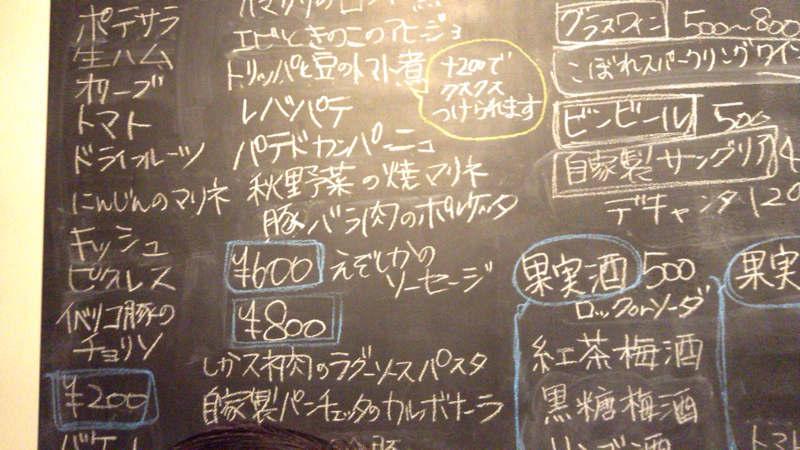 ポテサラ
生ハム
オリーブ
トマト
ドライフルーツ
にんじんのマリネ
キッシュ
ピクルス
イベリコ豚の
チョリソ
¥200
エビときのこのアヒージョ
トリッパと豆のトマト煮
+200で
クスクス
つけられます
レバパテ
パテドカンパーニュ
秋野菜の焼マリネ
豚バラ肉のポルケッタ
¥600
えぞしかの
ソーセージ
¥800
しかスネ肉のラグーソースパスタ
自家製パンチェッタのカルボナーラ
グラスワイン 500~800
こぼれスパークリングワイン
ビンビール 500
自家製サングリア
デキャンタ 120
果実酒 500
ロックorソーダ
紅茶梅酒
黒糖梅酒
リンゴ酒
果実
トマト